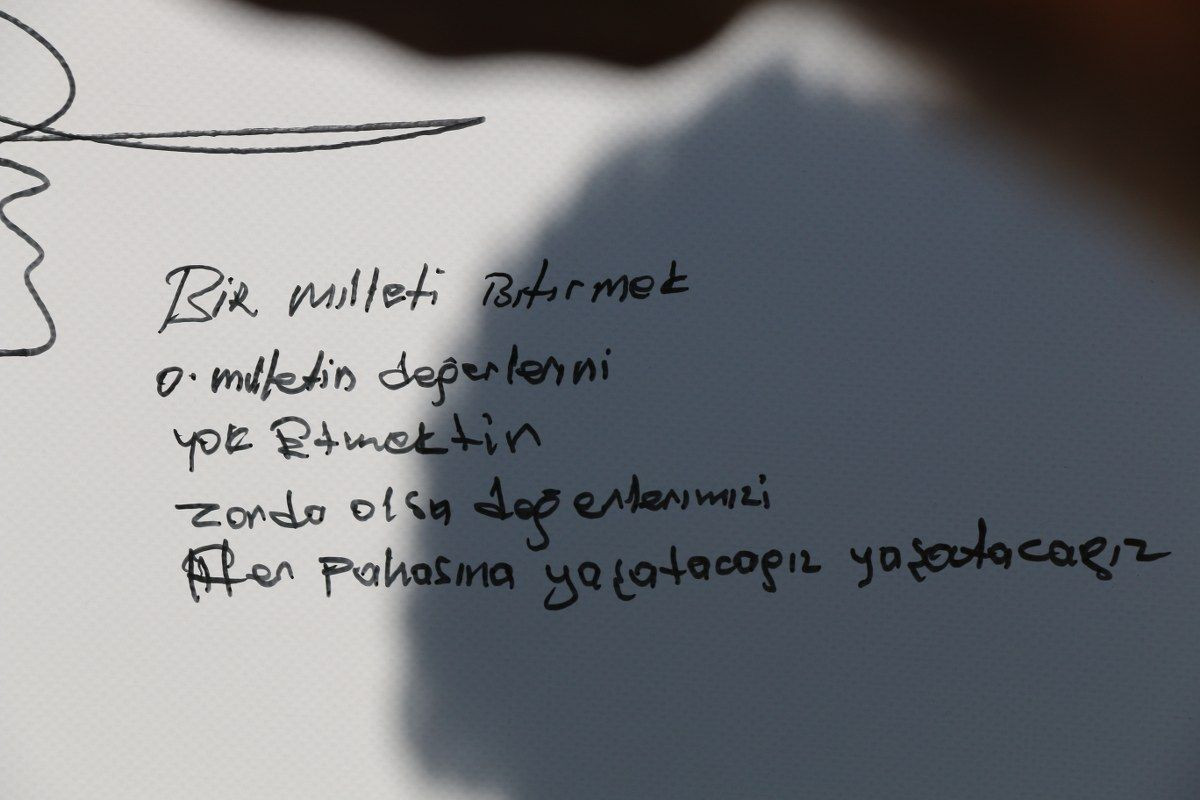 Bir milleti Bitirmek
o. milletin değerlerini
yok Etmektin
zorda olsa değerlerimizi
Her Pahasına yaşatacağız yaşatacağız